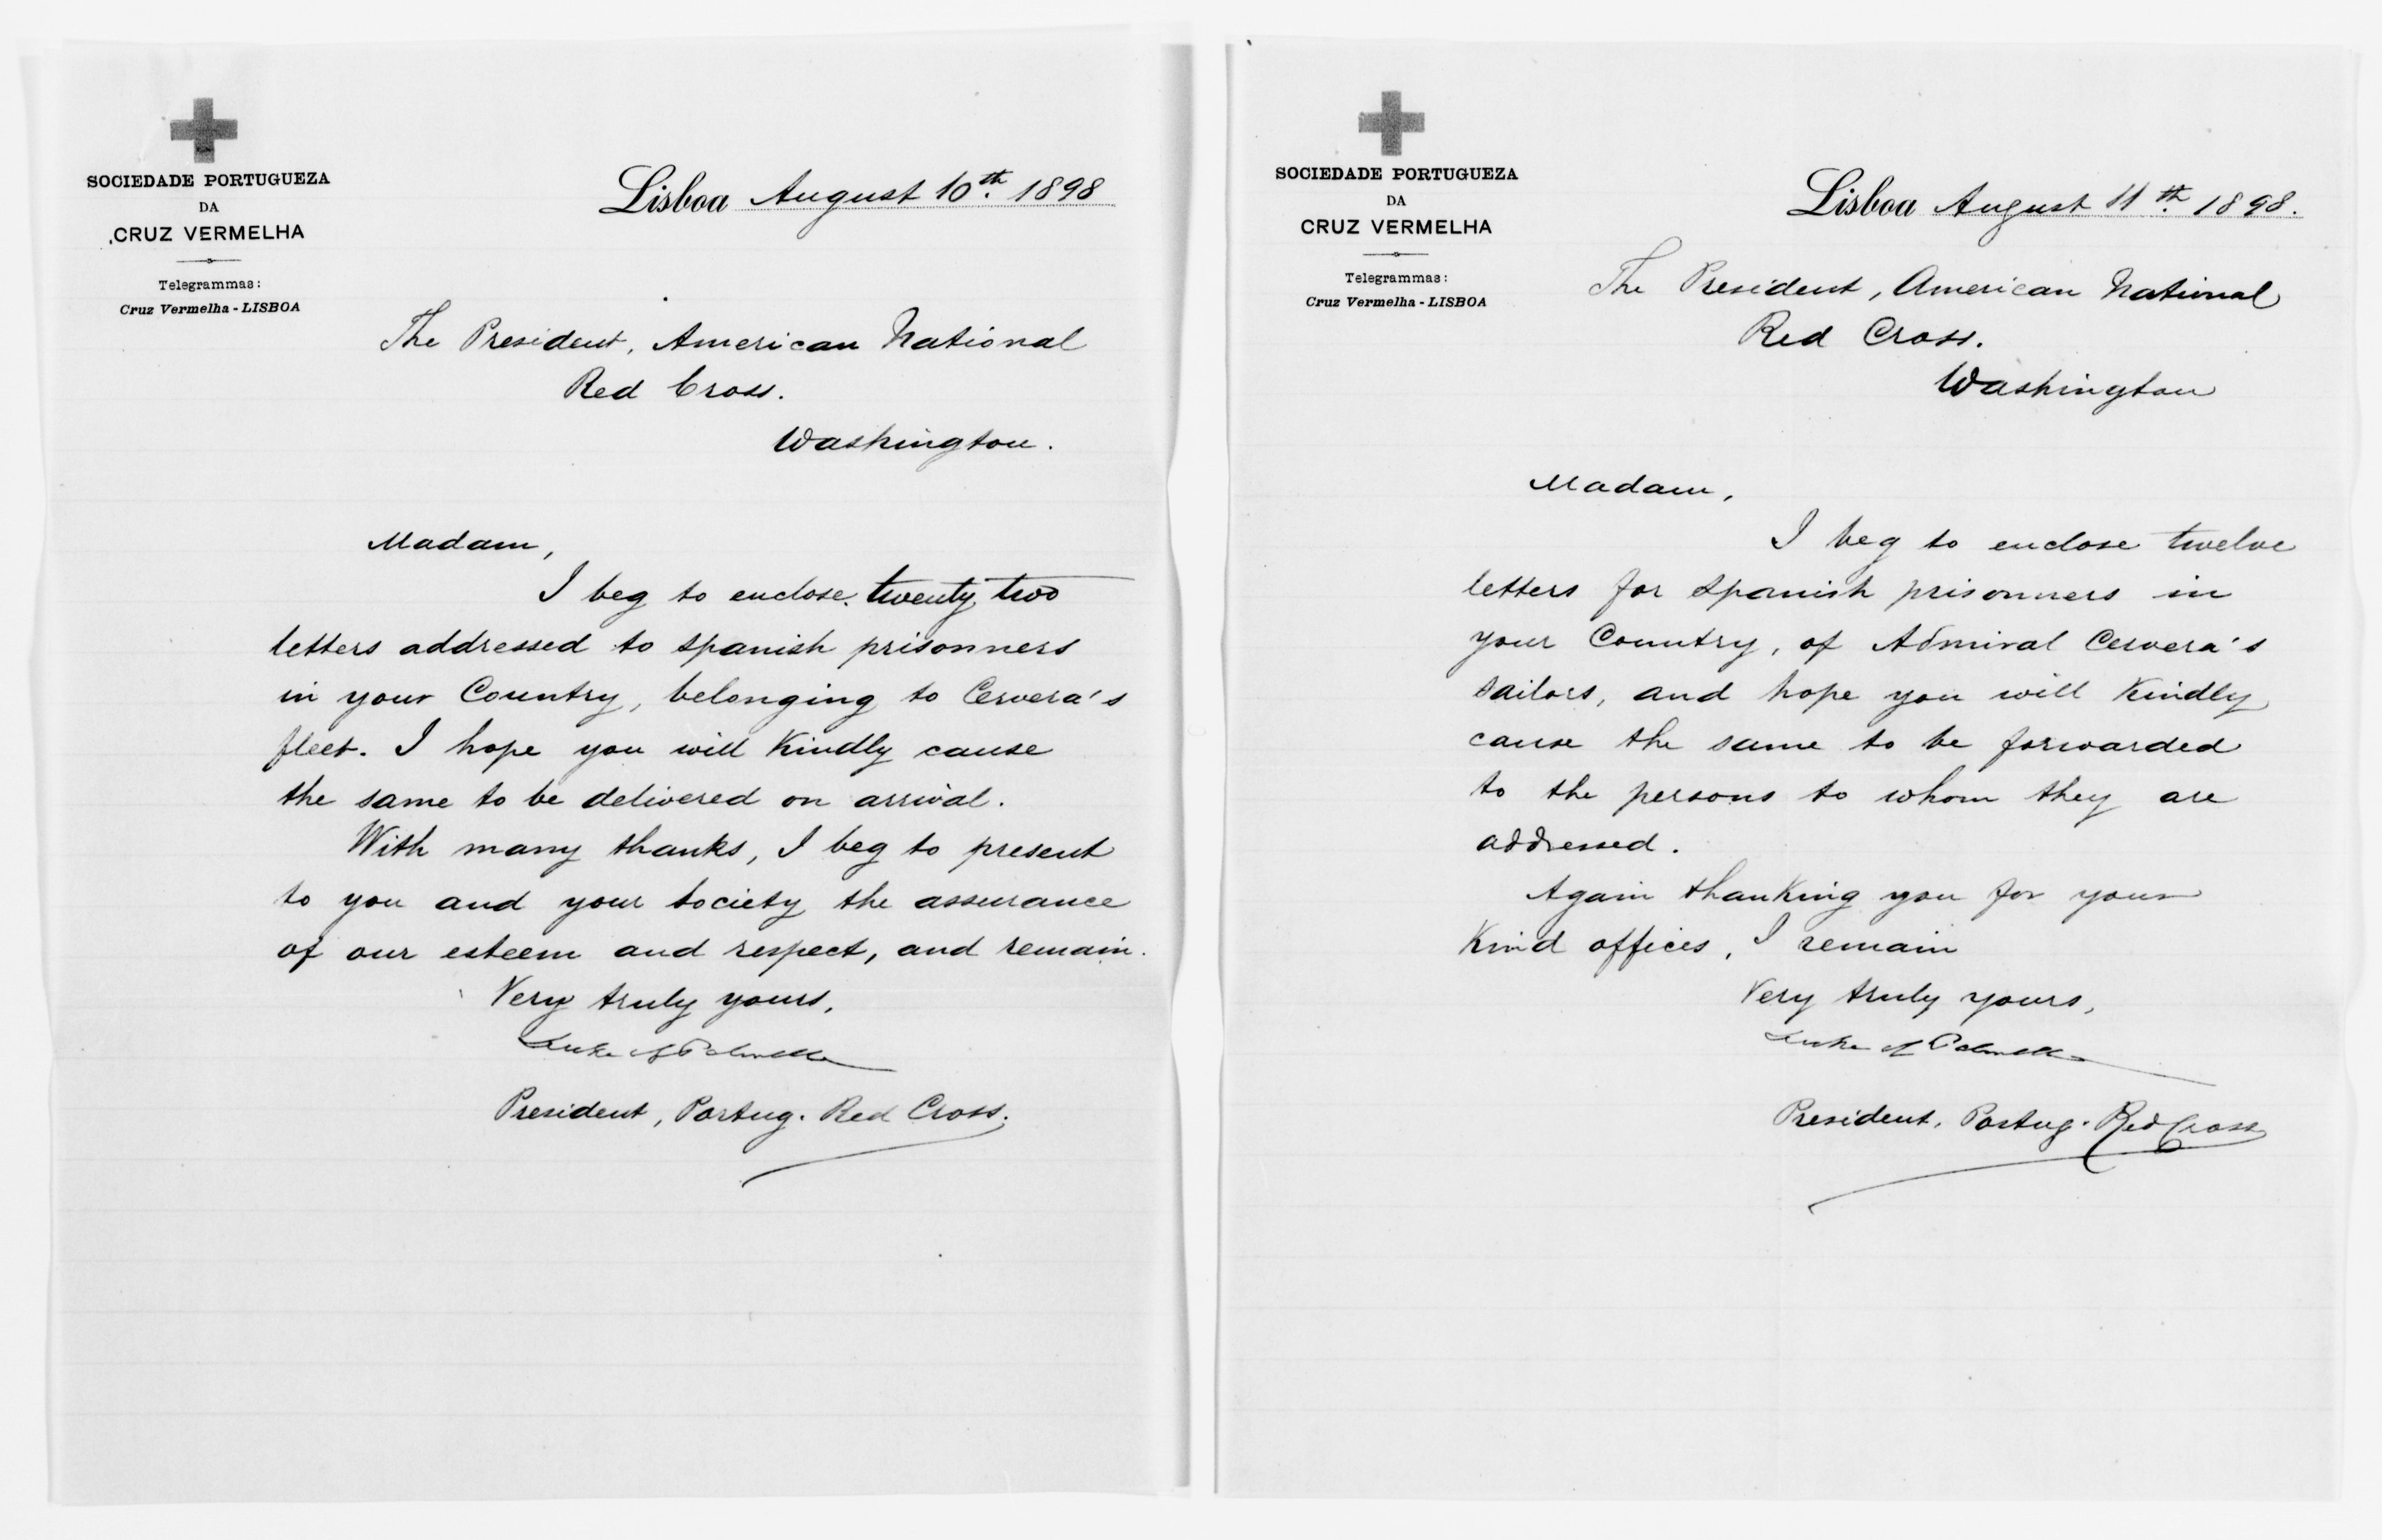 SOCIEDADE PORTUGUEZA
DA
CRUZ VERMELHA
Telegrammas:
Cruz Vermelha - LISBOA
Lisboa August 10th. 1898
The President, American National
Red Cross.
Washington.
Madam,
I beg to enclose twenty two
letters addressed to spanish prisonners
in your Country, belonging to Cervera's
fleet. I hope you will Kindly cause
the same to be delivered on arrival.
With many thanks, I beg to present
to you and your Society the assurance
of our esteem and respect, and remain.
Very truly yours,
Duke of Palmella
President, Portug. Red Cross.
SOCIEDADE PORTUGUEZA
DA
CRUZ VERMELHA
Telegrammas:
Cruz Vermelha - LISBOA
Lisboa August 11th. 1898.
The President, American National
Red Cross.
Washington
Madam,
I beg to enclose twelve
letters for Spanish prisonners in
your Country, of Admiral Cervera's
sailors, and hope you will Kindly
cause the same to be forwarded
to the persons to whom they are
addressed.
Again thanKing you for your
Kind offices, I remain
Very truly yours,
Duke of Palmella
President, Portug. Red Cross